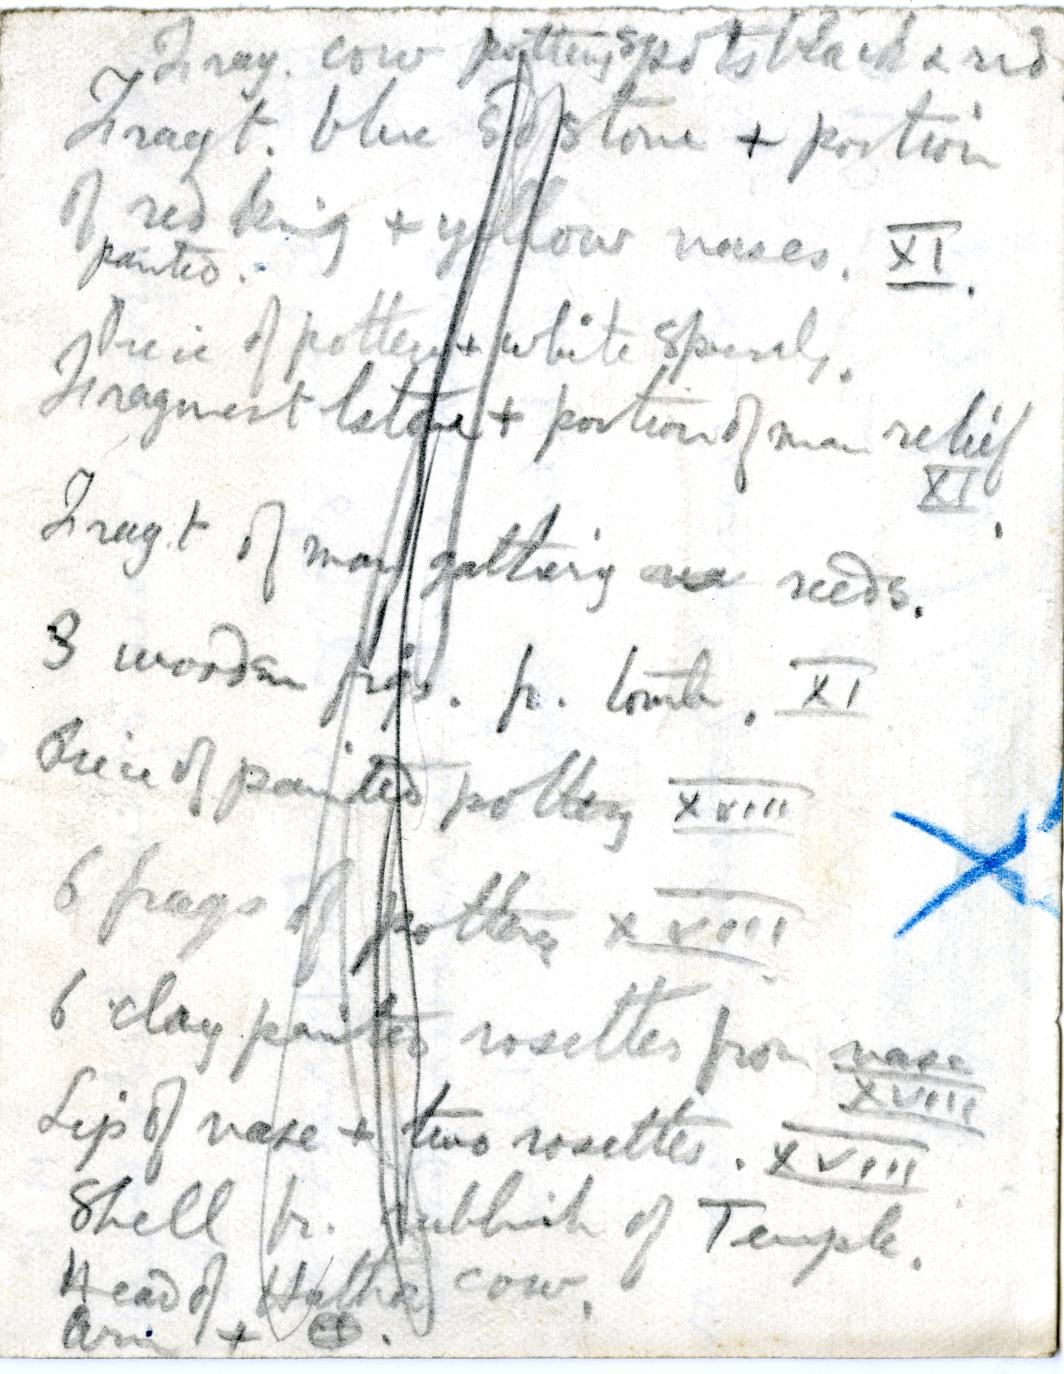 Frag. cow pottery spots black & red
Fragt. blue stone + portion
of red king + yellow vases. XI.
painted.
Piece of pottery + white spirals.
Fragment lstone + portion of man relief
XI.
Fragt of man gathering reeds.
3 wooden figs. fr. tomb. XI
Piece of painted pottery XVIII
6 frags of pottery XVIII
6 clay painted rosettes from vase
XVIII
Lip of vase + two rosettes. XVIII
Shell fr. rubbish of Temple.
Head of Hathor cow.
Arm +